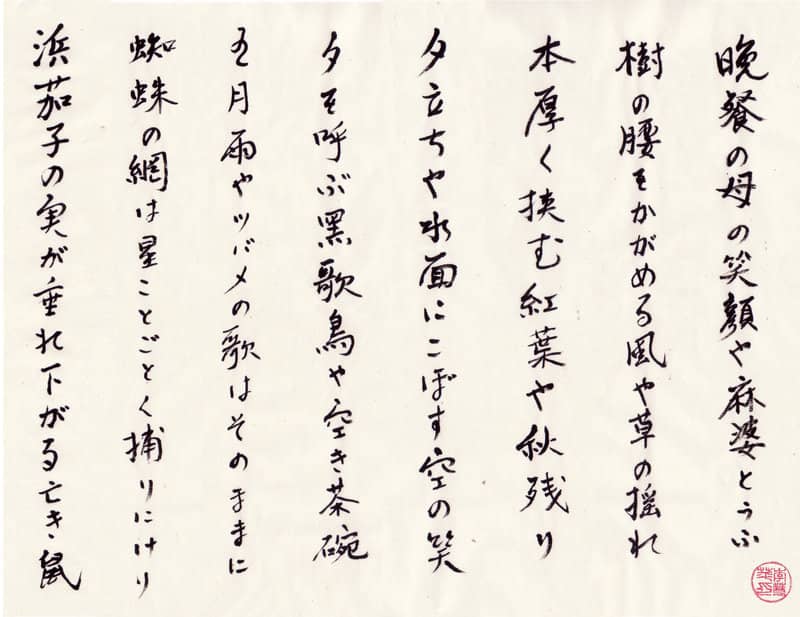 晩餐の母の笑顔や麻婆とうふ
樹の腰をかがめる風や草の揺れ
本厚く挟む紅葉や秋残り
夕立ちや水面にこぼす空の笑
夕を呼ぶ黒歌鳥や空き茶碗
五月雨やツバメの歌はそのままに
蜘蛛の網は星ことごとく捕りにけり
浜茄子の実が垂れ下がる亡き鼠